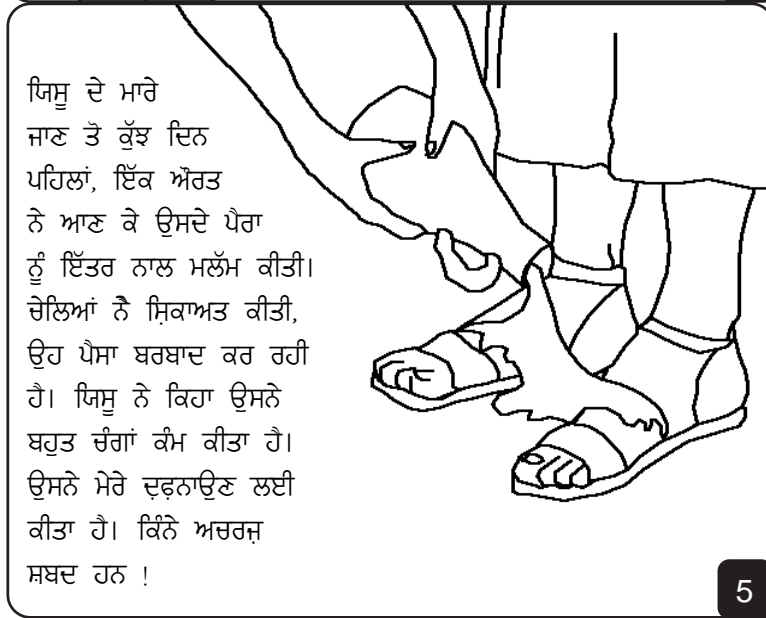 ਯਿਸੂ ਦੇ ਮਾਰੇ
ਜਾਣ ਤੋ ਕੁੱਝ ਦਿਨ
ਪਹਿਲਾਂ, ਇੱਕ ਔਰਤ
ਨੇ ਆਣ ਕੇ ਉਸਦੇ ਪੈਰਾ
ਨੂੰ ਇੱਤਰ ਨਾਲ ਮਲੱਮ ਕੀਤੀ।
ਚੇਲਿਆਂ ਨੈ ਸ਼ਿਕਾਅਤ ਕੀਤੀ,
ਉਹ ਪੈਸਾ ਬਰਬਾਦ ਕਰ ਰਹੀ
ਹੈ। ਯਿਸੂ ਨੇ ਕਿਹਾ ਉਸਨੇ
ਬਹੁਤ ਚੰਗਾਂ ਕੰਮ ਕੀਤਾ ਹੈ।
ਉਸਨੇ ਮੇਰੇ ਦਫ਼ਨਾਉਣ ਲਈ
ਕੀਤਾ ਹੈ। ਕਿੰਨੇ ਅਚਰਜ਼
ਸ਼ਬਦ ਹਨ !
5